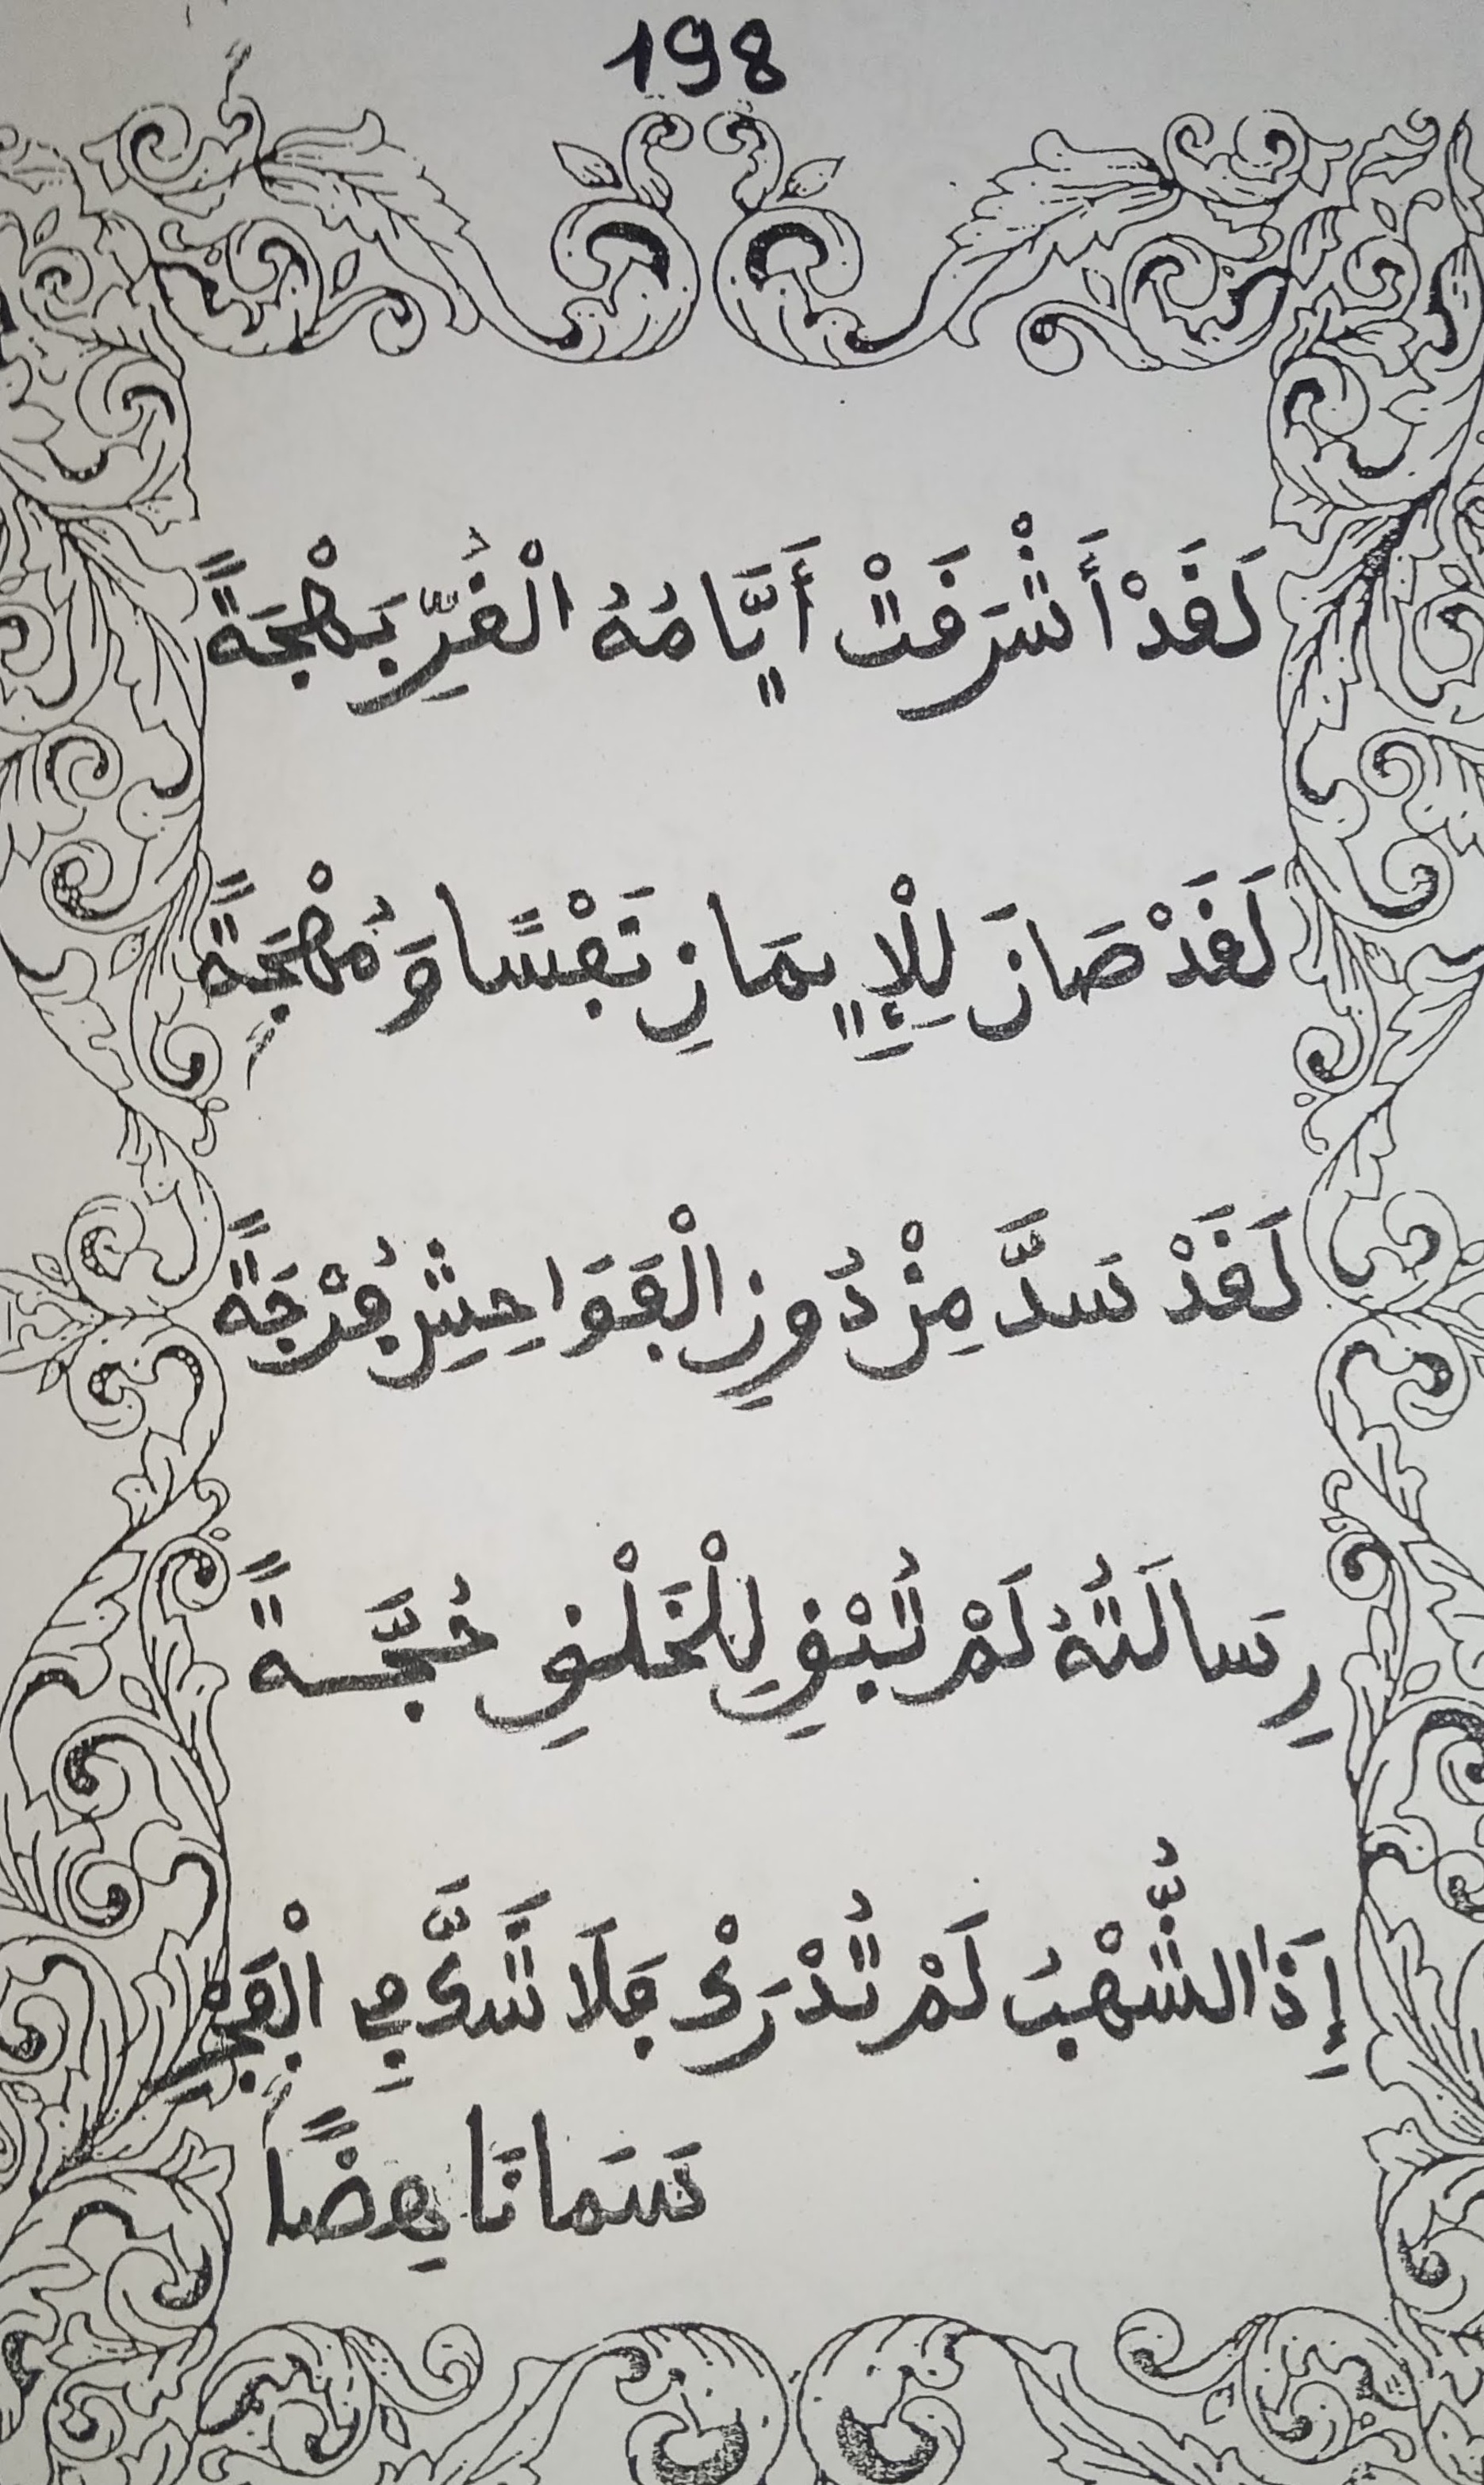 198
لَقَدْ أَشْرَقَتْ أَيَّامُهُ الْغُرِّ بَهْجَةً
لَقَدْ صَانَ لِلْإِيمَانِ نَفْسًا وَمُهْجَةً
لَقَدْ سَدَّ مِنْ دُونِ الْفَوَاحِشِ فُرْجَةً
رِسَالَتُهُ لَمْ تُبْقِ لِلْخَلْقِ حُجَّةً
إِذَا الشُّهْبُ لَمْ تُدْرَىْ فَلَا شَكَّ فِي الْفَجْرِ
سَمَا نَاهِضًا